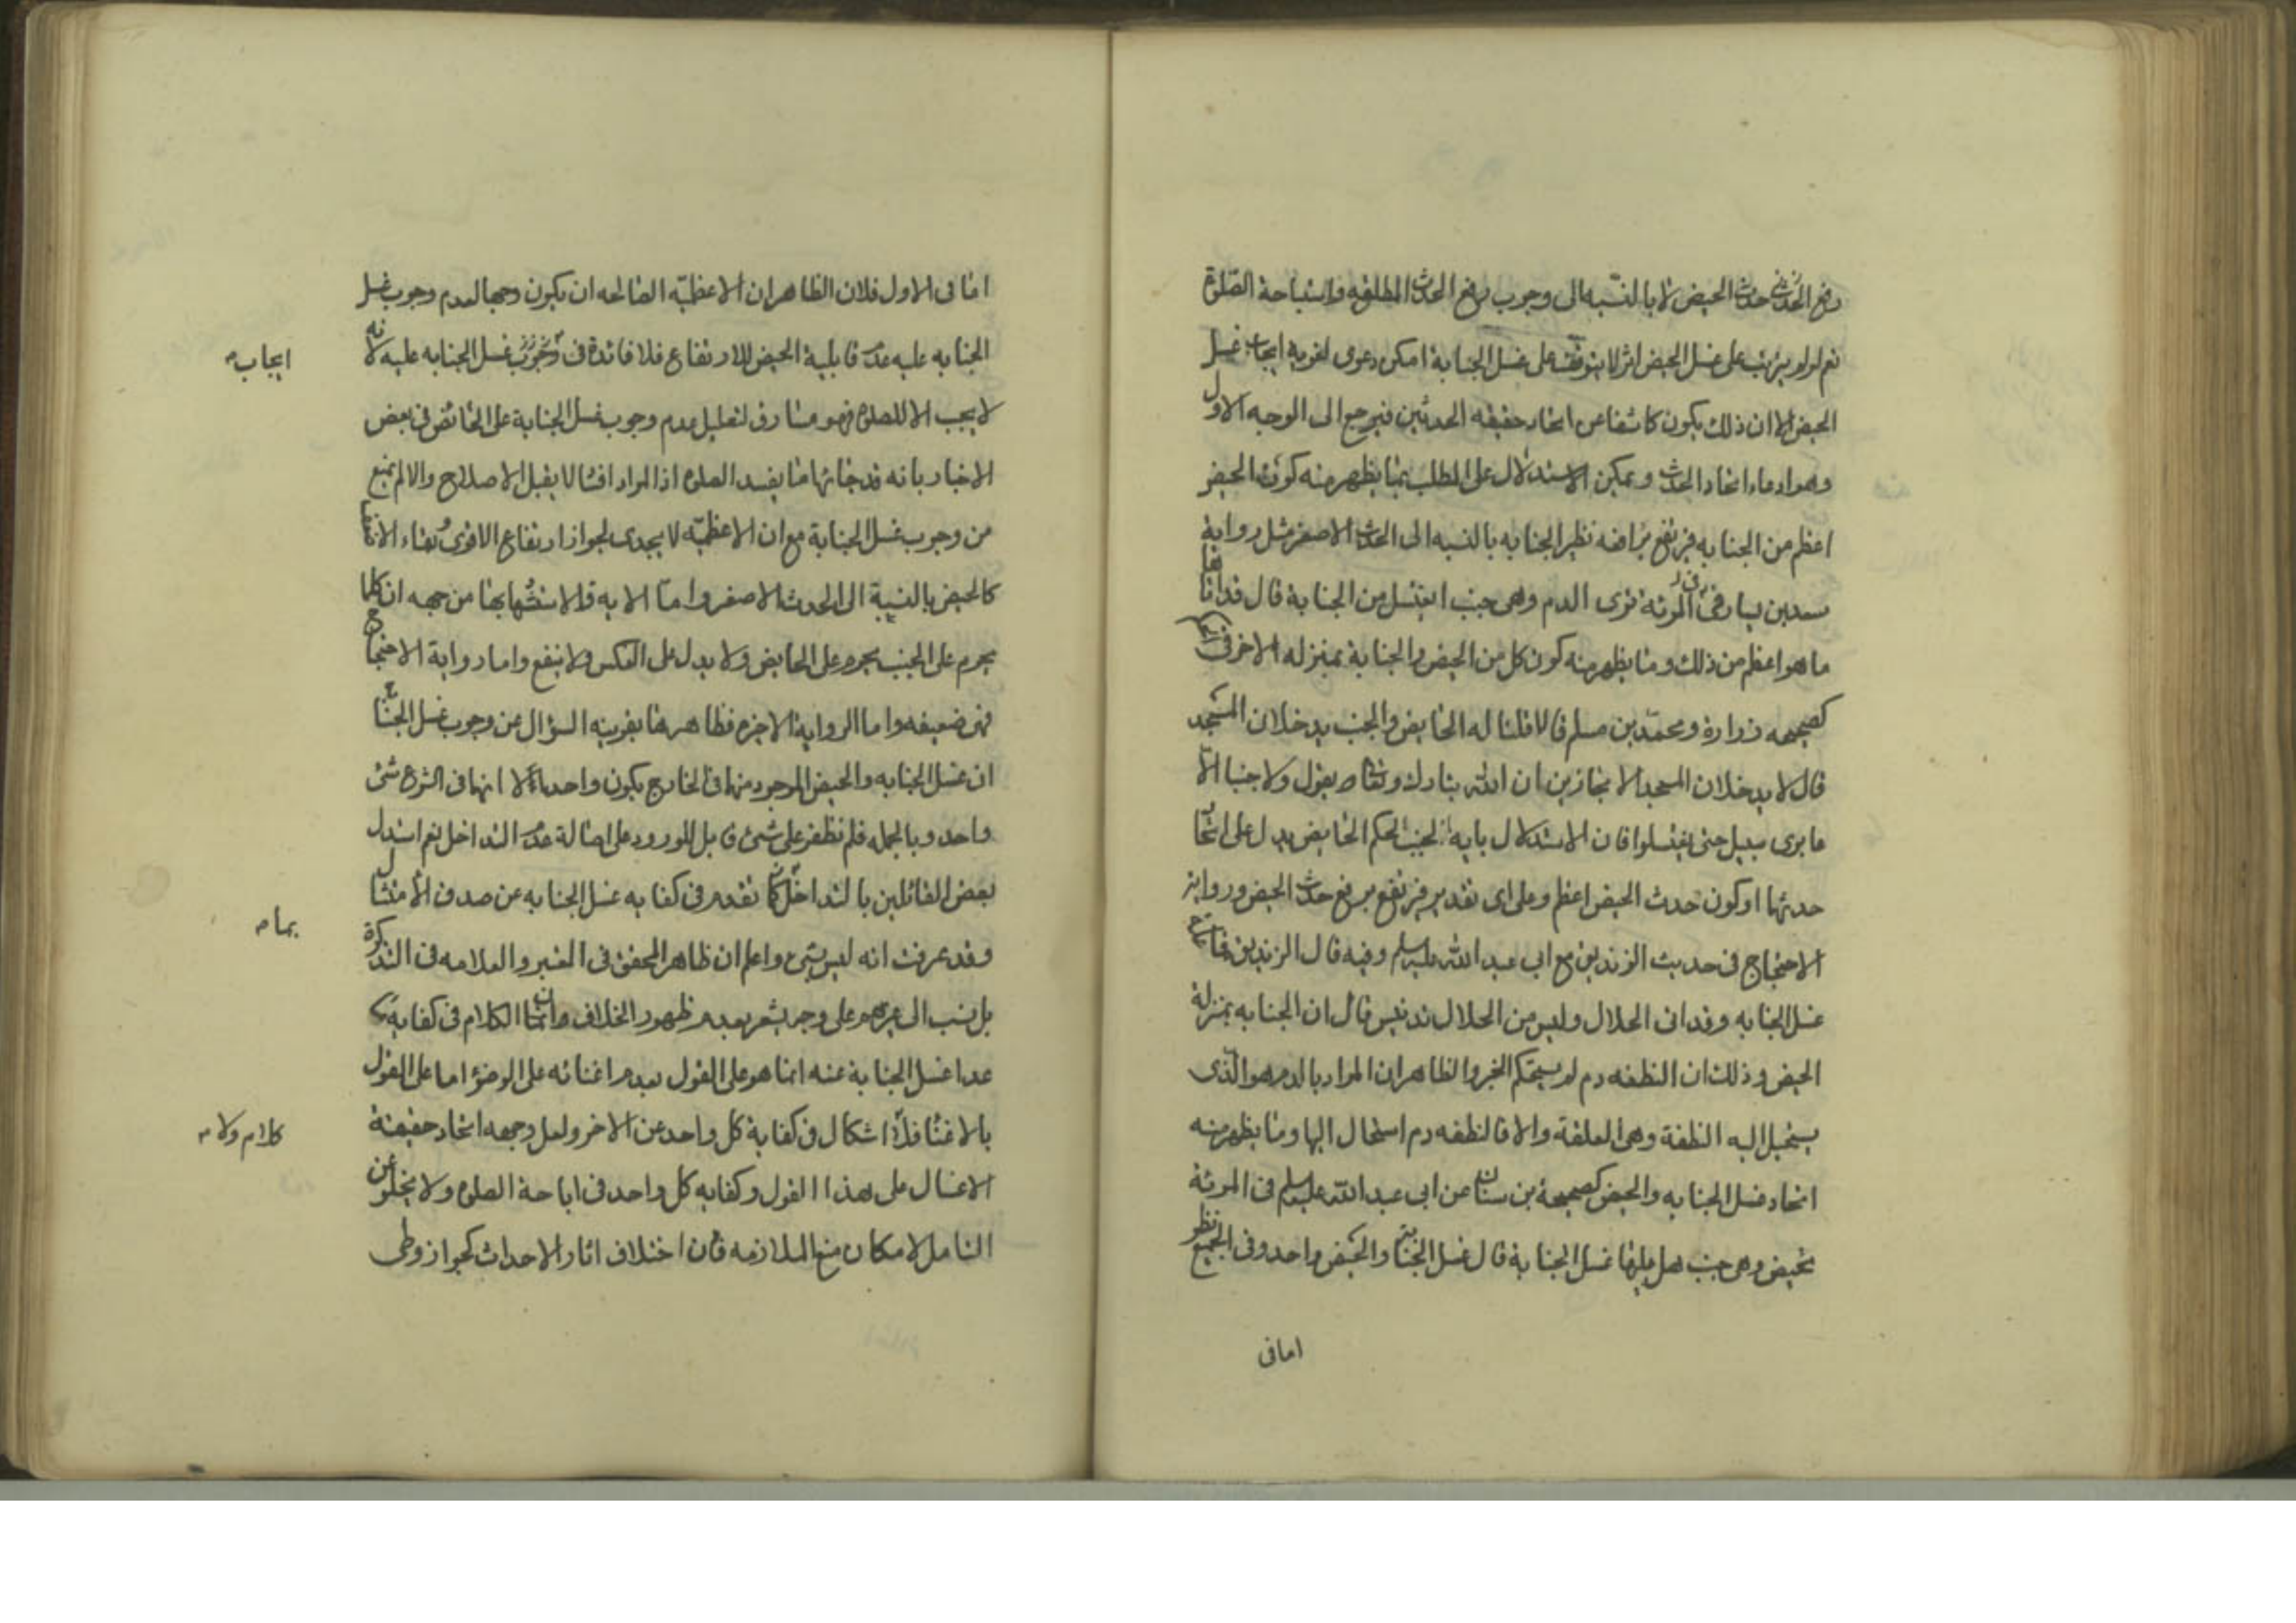 رفع الحدث حدث الحيض لا بالنسبه الى وجوب رفع الحدث المطلقه واستباحة الصلوة
نعم لو لم يترتب على غسل الحيض اثر لا يتوقف على غسل الجنابة امكن دعوى لغوية ايجاب غسل
الحيض الا ان ذلك يكون كاشفا عن اتحاد حقيقه الحدثين فيرجع الى الوجه الاول
وهو ادعاء اتحاد الحدث ويمكن الاستدلال على المطلب بما يظهر منه كون الحيض
اعظم من الجنابه فيرتفع برافعه نظير الجنابه بالنسبه الى الحدث الاصغر مثل رواية
سعد بن يسار فى المرئة ترى الدم وهى جنب اتغتسل من الجنابة قال قد اتاها
ما هو اعظم من ذلك وما يظهر منه كون كل من الحيض والجنابة بمنزله الاخر فى
كصحيحه زرارة ومحمد بن مسلم قالا قلنا له الحايض والجنب يدخلان المسجد
قال لا يدخلان المسجد الا مجتازين ان الله تبارك وتعالى يقول ولا جنبا الا
عابرى سبيل حتى تغتسلوا فان الاستدلال باية الجنب لحكم الحايض يدل على اتحاد
حدثهما او كون حدث الحيض اعظم وعلى اى تقدير فيرتفع برفع حدث الحيض ورواية
الاحتجاج فى حديث الزنديق مع ابى عبد الله عليه السلم وفيه قال الزنديق فما
غسل الجنابه وقد اتى الحلال وليس من الحلال تدنيس قال ان الجنابه بمنزلة
الحيض وذلك ان النطفه دم لم يستحكم الخبر والظاهر ان المراد بالدم هو الذى
يستحيل اليه النطفة وهى العلقة والا فالنطفه دم استحال اليها وما يظهر منه
اتحاد غسل الجنابه والحيض كصحيحة بن سنان عن ابى عبد الله عليه السلم فى المرئة
تحيض وهى جنب هل عليها غسل الجنابة قال غسل الجنابة والحيض واحد وفى الجميع نظر
امافى
اما فى الاول فلان الظاهر ان الاعظميّه الصالحه ان يكون وجها لعدم وجوب غسل
الجنابه عليه عدم قابلية الحيض للارتفاع فلا فائدة فى وجوب غسل الجنابه عليه لانه
ايجاب
لا يجب الا للصلوة فهو مساوق لتعليل عدم وجوب غسل الجنابة على الحائض فى بعض
الاخبار بانه قد جائها ما يفسد الصلوة اذ المراد افسادا لا يقبل الاصلاح والا لم يمنع
من وجوب غسل الجنابة مع ان الاعظميّه لا يجدى لجواز ارتفاع الاقوى وبقاء الاضعف
كالحيض بالنسبة الى الحدث الاصغر وامّا الايه فالاستشهاد بها من جهه ان كلما
يحرم على الجنب يحرم على الحايض ولا يدل على العكس ولا ينفع واما رواية الاحتجاج
فهى ضعيفه واما الرواية الاخيرة فظاهرها بقرينه السؤال عن وجوب غسل الجنابة
ان غسل الجنابه والحيض الموجود منهما فى الخارج يكون واحدا لا انهما فى الشرع شئ
واحد وبالجمله فلم نظفر على شئ قابل للورود على اصالة عدم التداخل نعم استدل
بعض القائلين بالتداخل كما تقدم فى كفايه غسل الجنابه عن صدق الامتثال
بما
وقد عرفت انه ليس بشئ واعلم ان ظاهر المحقق فى المعتبر والعلامه فى التذكرة
بل نسب الى غيرهم على وجه يشعر بعدم ظهور الخلاف ان الكلام فى كفاية
عدا غسل الجنابة عنه انما هو على القول بعدم اغنائه على الوضوء اما على القول
بالاغناء فلا اشكال فى كفاية كل واحد عن الاخر ولعل وجهه اتحاد حقيقة
كلام ولا
الاغسال على هذا القول وكفايه كل واحد فى اباحة الصلوة ولا يخلو عن
التامل لامكان منع الملازمه فان اختلاف اثار الاحداث كجواز وطى